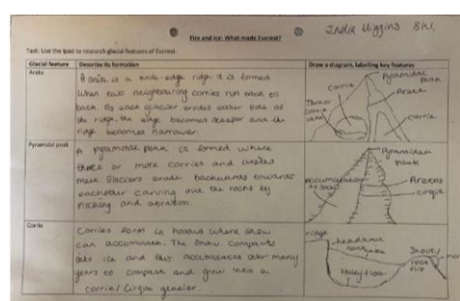 India Higgins 8K1
Fire and Ice: What made Everest?
Task: Use the ipad to research glacial features of Everest.
Glacial feature Describe its formation Draw a diagram, labelling key features
Arete
A arete is a knife-edge ridge. It is formed
when two neighbouring corries run back to
back. As each glacier erodes either side of
the ridge, the edge becomes steeper and the
ridge becomes narrower.
corrie
Pyramidal
peak
Arete
corrie
Pyramidal peak
A pyramidal peak is formed where
three or more corries and aretes
meet. Glaciers erode backwards towards
eachother carving out the rocks by
plucking and abrasion.
Pyramidal
peak
accumulation
of snow
Aretes
cirque
Corrie
Corries form in hollows where snow
can accumulate. The snow compacts
into ice and this accumulates over many
years to compact and grow into a
corrie/cirque glacier.
ridge
headwall
rock
lip